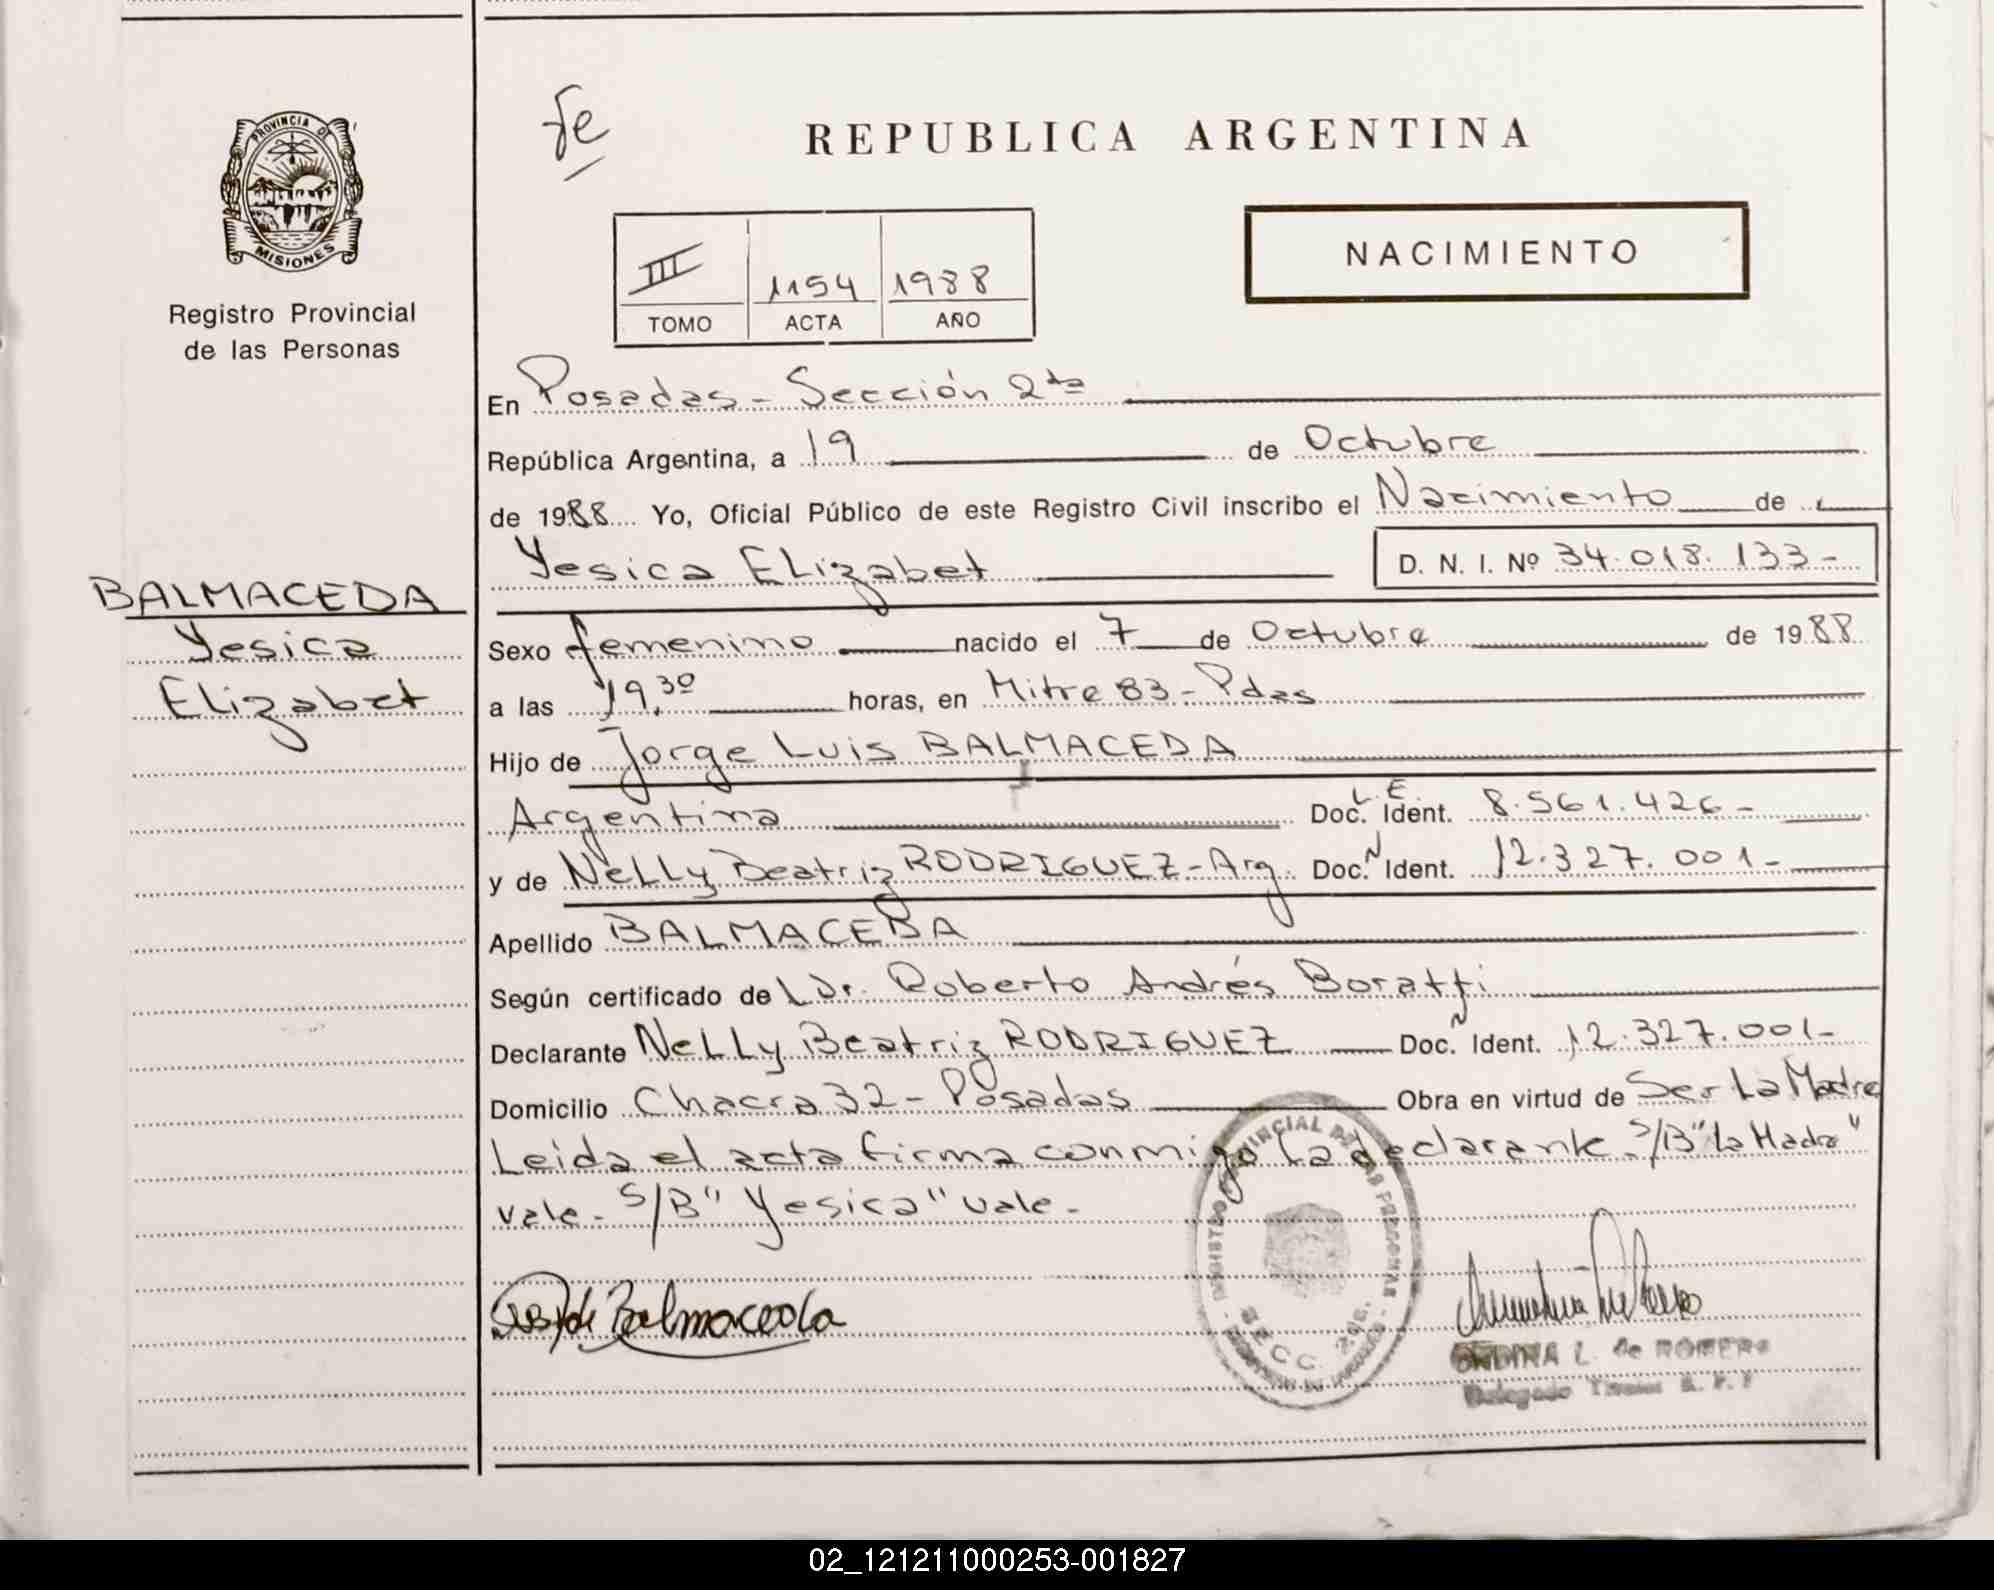 PROVINCIA DE
MISIONES
Registro Provincial
de las Personas
BALMACEDA
Yesica
Elizabet
Fe
REPUBLICA ARGENTINA
III 1154 1988
TOMO ACTA AÑO
NACIMIENTO
En Posadas - Sección 2da
República Argentina, a 19 de Octubre
de 1988 Yo, Oficial Público de este Registro Civil inscribo el Nacimiento de
Yesica Elizabet D. N. I. Nº 34.018.133-
Sexo femenino nacido el 7 de Octubre de 1988
a las 19,30 horas, en Mitre 83 - Pdas
Hijo de Jorge Luis BALMACEDA
Argentina Doc. L.E. Ident. 8.561.426-
y de Nelly Beatriz RODRIGUEZ - Arg Doc. N Ident. 12.327.001-
Apellido BALMACEDA
Según certificado de L Dr. Roberto Andrés Boratti
Declarante Nelly Beatriz RODRIGUEZ Doc. Ñ Ident. 12.327.001-
Domicilio Chacra 32 - Posadas Obra en virtud de Ser La Madre
Leida el acta firma conmigo La declarante. S/B "La Madre"
vale. S/B "Yesica" vale.
de Balmaceda
SECC. 2da.
ONDINA L. de ROMERO
02_121211000253-001827